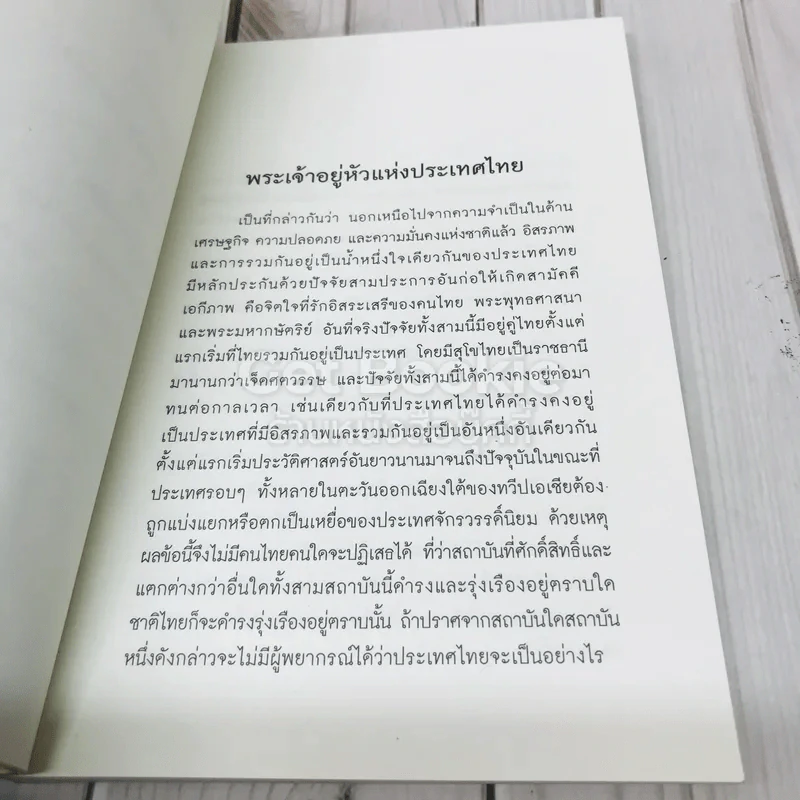 พระเจ้าอยู่หัวแห่งประเทศไทย
เป็นที่กล่าวกันว่า นอกเหนือไปจากความจำเป็นในด้าน
เศรษฐกิจ ความปลอดภัย และความมั่นคงแห่งชาติแล้ว อิสรภาพ
และการรวมกันอยู่เป็นน้ำหนึ่งใจเดียวกันของประเทศไทย
มีหลักประกันด้วยปัจจัยสามประการอันก่อให้เกิดสามัคคี
เอกีภาพ คือจิตใจที่รักอิสระเสรีของคนไทย พระพุทธศาสนา
และพระมหากษัตริย์ อันที่จริงปัจจัยทั้งสามนี้มีอยู่คู่ไทยตั้งแต่
แรกเริ่มที่ไทยรวมกันอยู่เป็นประเทศ โดยมีสุโขไทยเป็นราชธานี
มานานกว่าเจ็ดศตวรรษ และปัจจัยทั้งสามนี้ได้ดำรงคงอยู่ต่อมา
ทนต่อกาลเวลา เช่นเดียวกับที่ประเทศไทยได้ดำรงคงอยู่
เป็นประเทศที่มีอิสรภาพและรวมกันอยู่เป็นอันหนึ่งอันเดียวกัน
ตั้งแต่แรกเริ่มประวัติศาสตร์อันยาวนานมาจนถึงปัจจุบันในขณะที่
ประเทศรอบๆ ทั้งหลายในตะวันออกเฉียงใต้ของทวีปเอเชียต้อง
ถูกแบ่งแยกหรือตกเป็นเหยื่อของประเทศจักรวรรดิ์นิยม ด้วยเหตุ
ผลข้อนี้จึงไม่มีคนไทยคนใดจะปฏิเสธได้ ที่ว่าสถาบันที่ศักดิ์สิทธิ์และ
แตกต่างกว่าอื่นใดทั้งสามสถาบันนี้ดำรงและรุ่งเรืองอยู่ตราบใด
ชาติไทยก็จะดำรงรุ่งเรืองอยู่ตราบนั้น ถ้าปราศจากสถาบันใดสถาบัน
หนึ่งดังกล่าวจะไม่มีผู้พยากรณ์ได้ว่าประเทศไทยจะเป็นอย่างไร
Got Bookie
ร้านหนังสือบุ๊คกี้